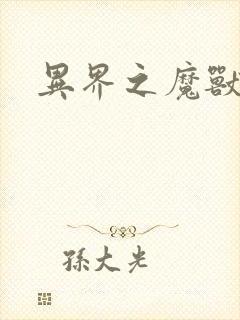 異界之魔獸
孫大光